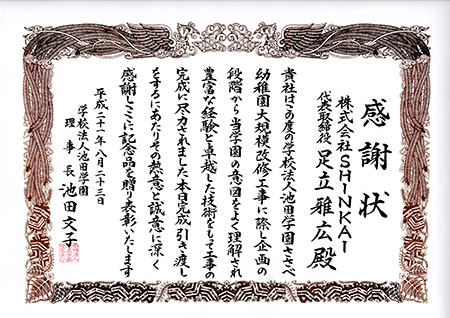 感謝状
株式会社SHINKAI
代表取締役 足立雅広殿
貴社はこの度の学校法人池田学園ささべ
幼稚園大規模改修工事に際し企画の
段階から当学園の意図をよく理解され
豊富な経験と卓越した技術をもって工事の
完成に尽力されました本日完成引き渡し
をするにあたりその熱意と誠意に深く
感謝しここに記念品を贈り表彰いたします
平成二十一年八月二十三日
学校法人池田学園
理事長 池田文子